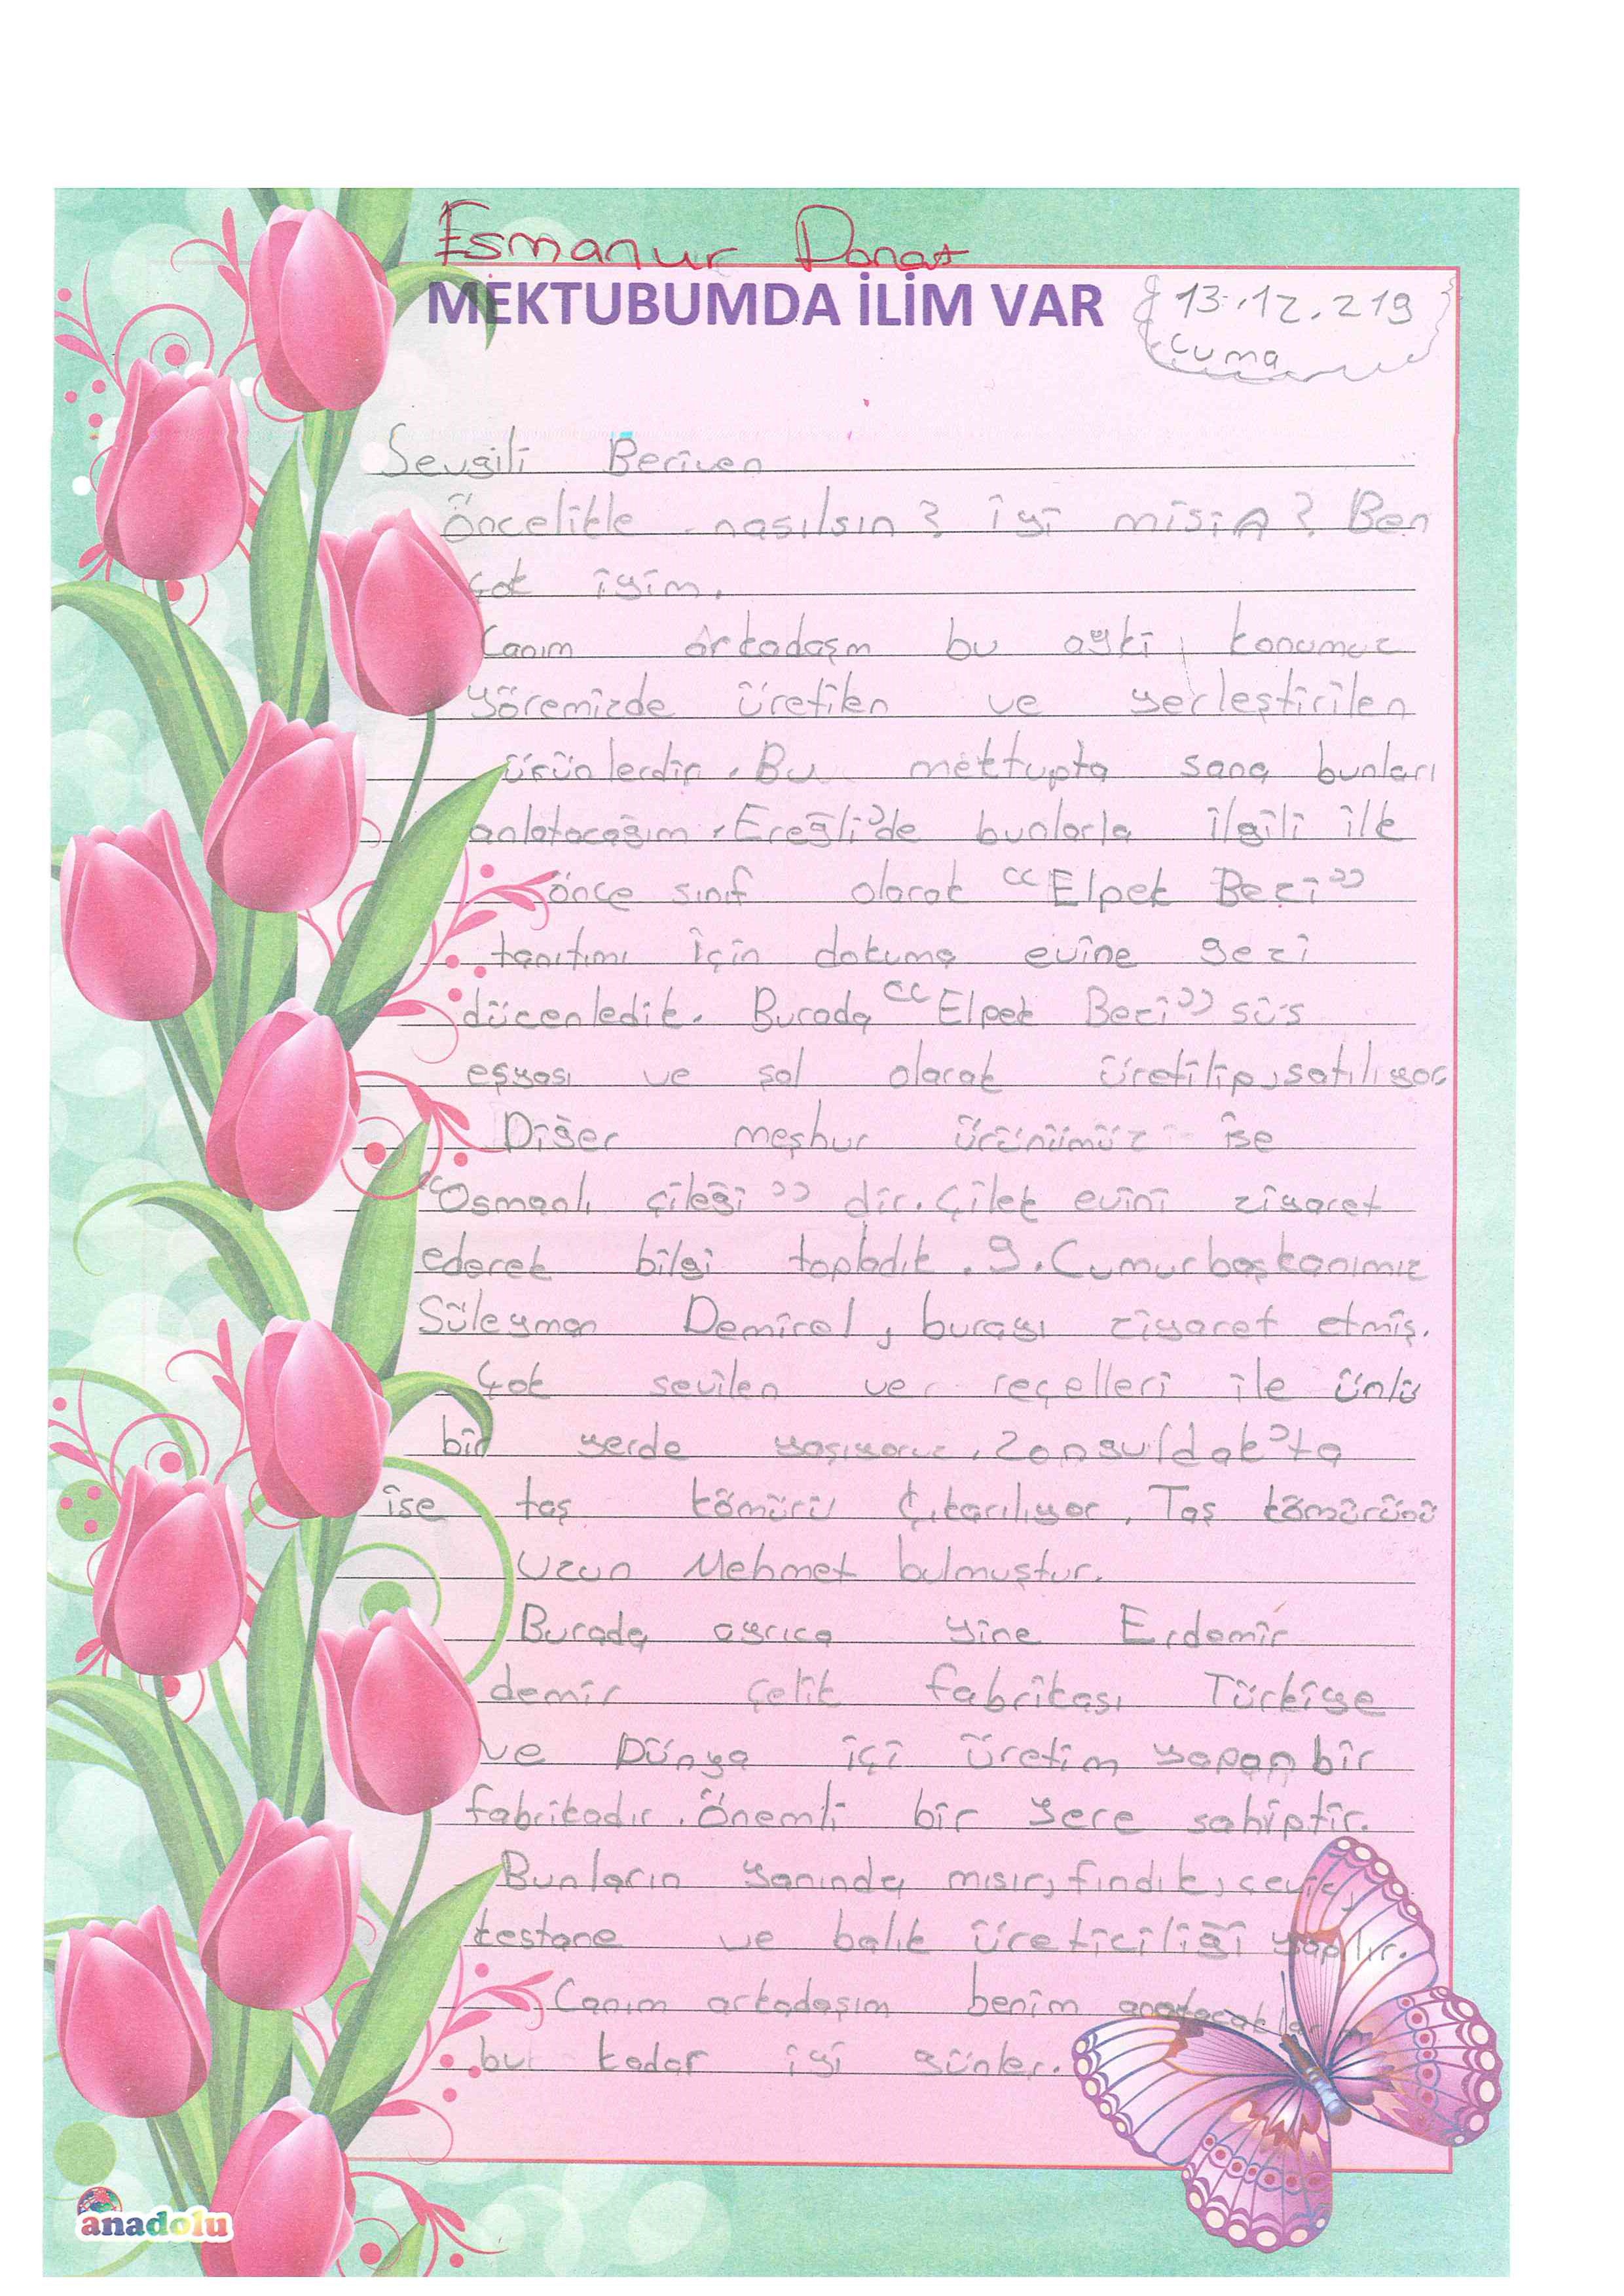 Esmanur Donat
MEKTUBUMDA İLİM VAR
13.12.219
cuma
Sevgili Berivan
Öncelikle nasılsın? iyi misin? Ben
çok iyim.
Canım arkadaşm bu ayki konumuz
yöremizde üretilen ve yerleştirilen
ürünlerdir. Bu mektupta sana bunları
anlatacağım. Ereğli'de bunlarla ilgili ilk
önce sınıf olarak "Elpek Bezi"
tanıtımı için dokuma evine gezi
düzenledik. Burada "Elpek Bezi" süs
eşyası ve şal olarak üretilip, satılıyor
Diğer meşhur ürünümüz ise
"Osmanlı çileği" dir. Çilek evini ziyaret
ederek bilgi topladık. 9. Cumurbaşkanımız
Süleyman Demirel, burayı ziyaret etmiş.
Çok sevilen ve reçelleri ile ünlü
bir yerde yaşıyoruz. Zonguldak'ta
ise taş kömürü çıkarılıyor. Taş kömürünü
Uzun Mehmet bulmuştur.
Burada ayrıca yine Erdemir
demir çelik fabrikası Türkiye
ve Dünya içi üretim yapan bir
fabrikadır. Önemli bir yere sahiptir.
Bunların yanında mısır, fındık, ceviz,
kestane ve balık üreticiliği yapılır.
Canım arkadaşım benim
bu kadar iyi günler.
anadolu